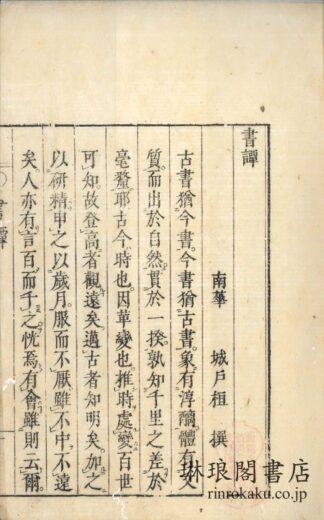 書譚
南華 城戸桓 撰
古書猶今書今書猶古書象有淳醨體有文
質而出於自然貫於一揆孰知千里之差於
毫釐耶古今時也因革變也推時處變百世
可知故登高者觀遠矣邁古者知明矣加之
以研精甲之以歲月服而不厭雖不中不遠
矣人亦有言百而千之恍焉有會雖則云爾
書譚
琳琅閣書店
rinrokaku.co.jp